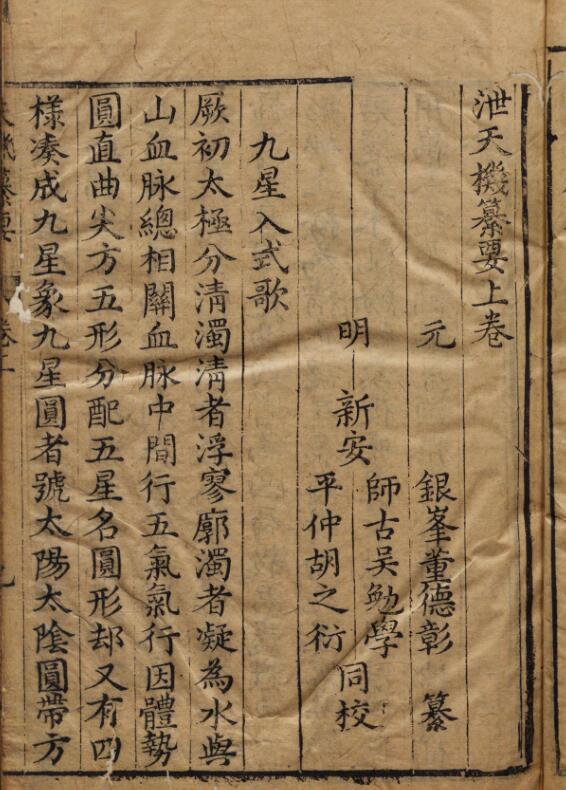 泄天機纂要上卷
元 銀峯董德彰 纂
明 新安 師古吴勉學 平仲胡之衍 同校
九星入式歌
厥初太極分清濁清者浮寥廓濁者凝為水與
山血脉總相關血脉中間行五氣氣行因體勢
圓直曲尖方五形分配五星名圓形却又有四
様凑成九星象九星圓者號太陽太陰圓帶方
天機纂要 卷上